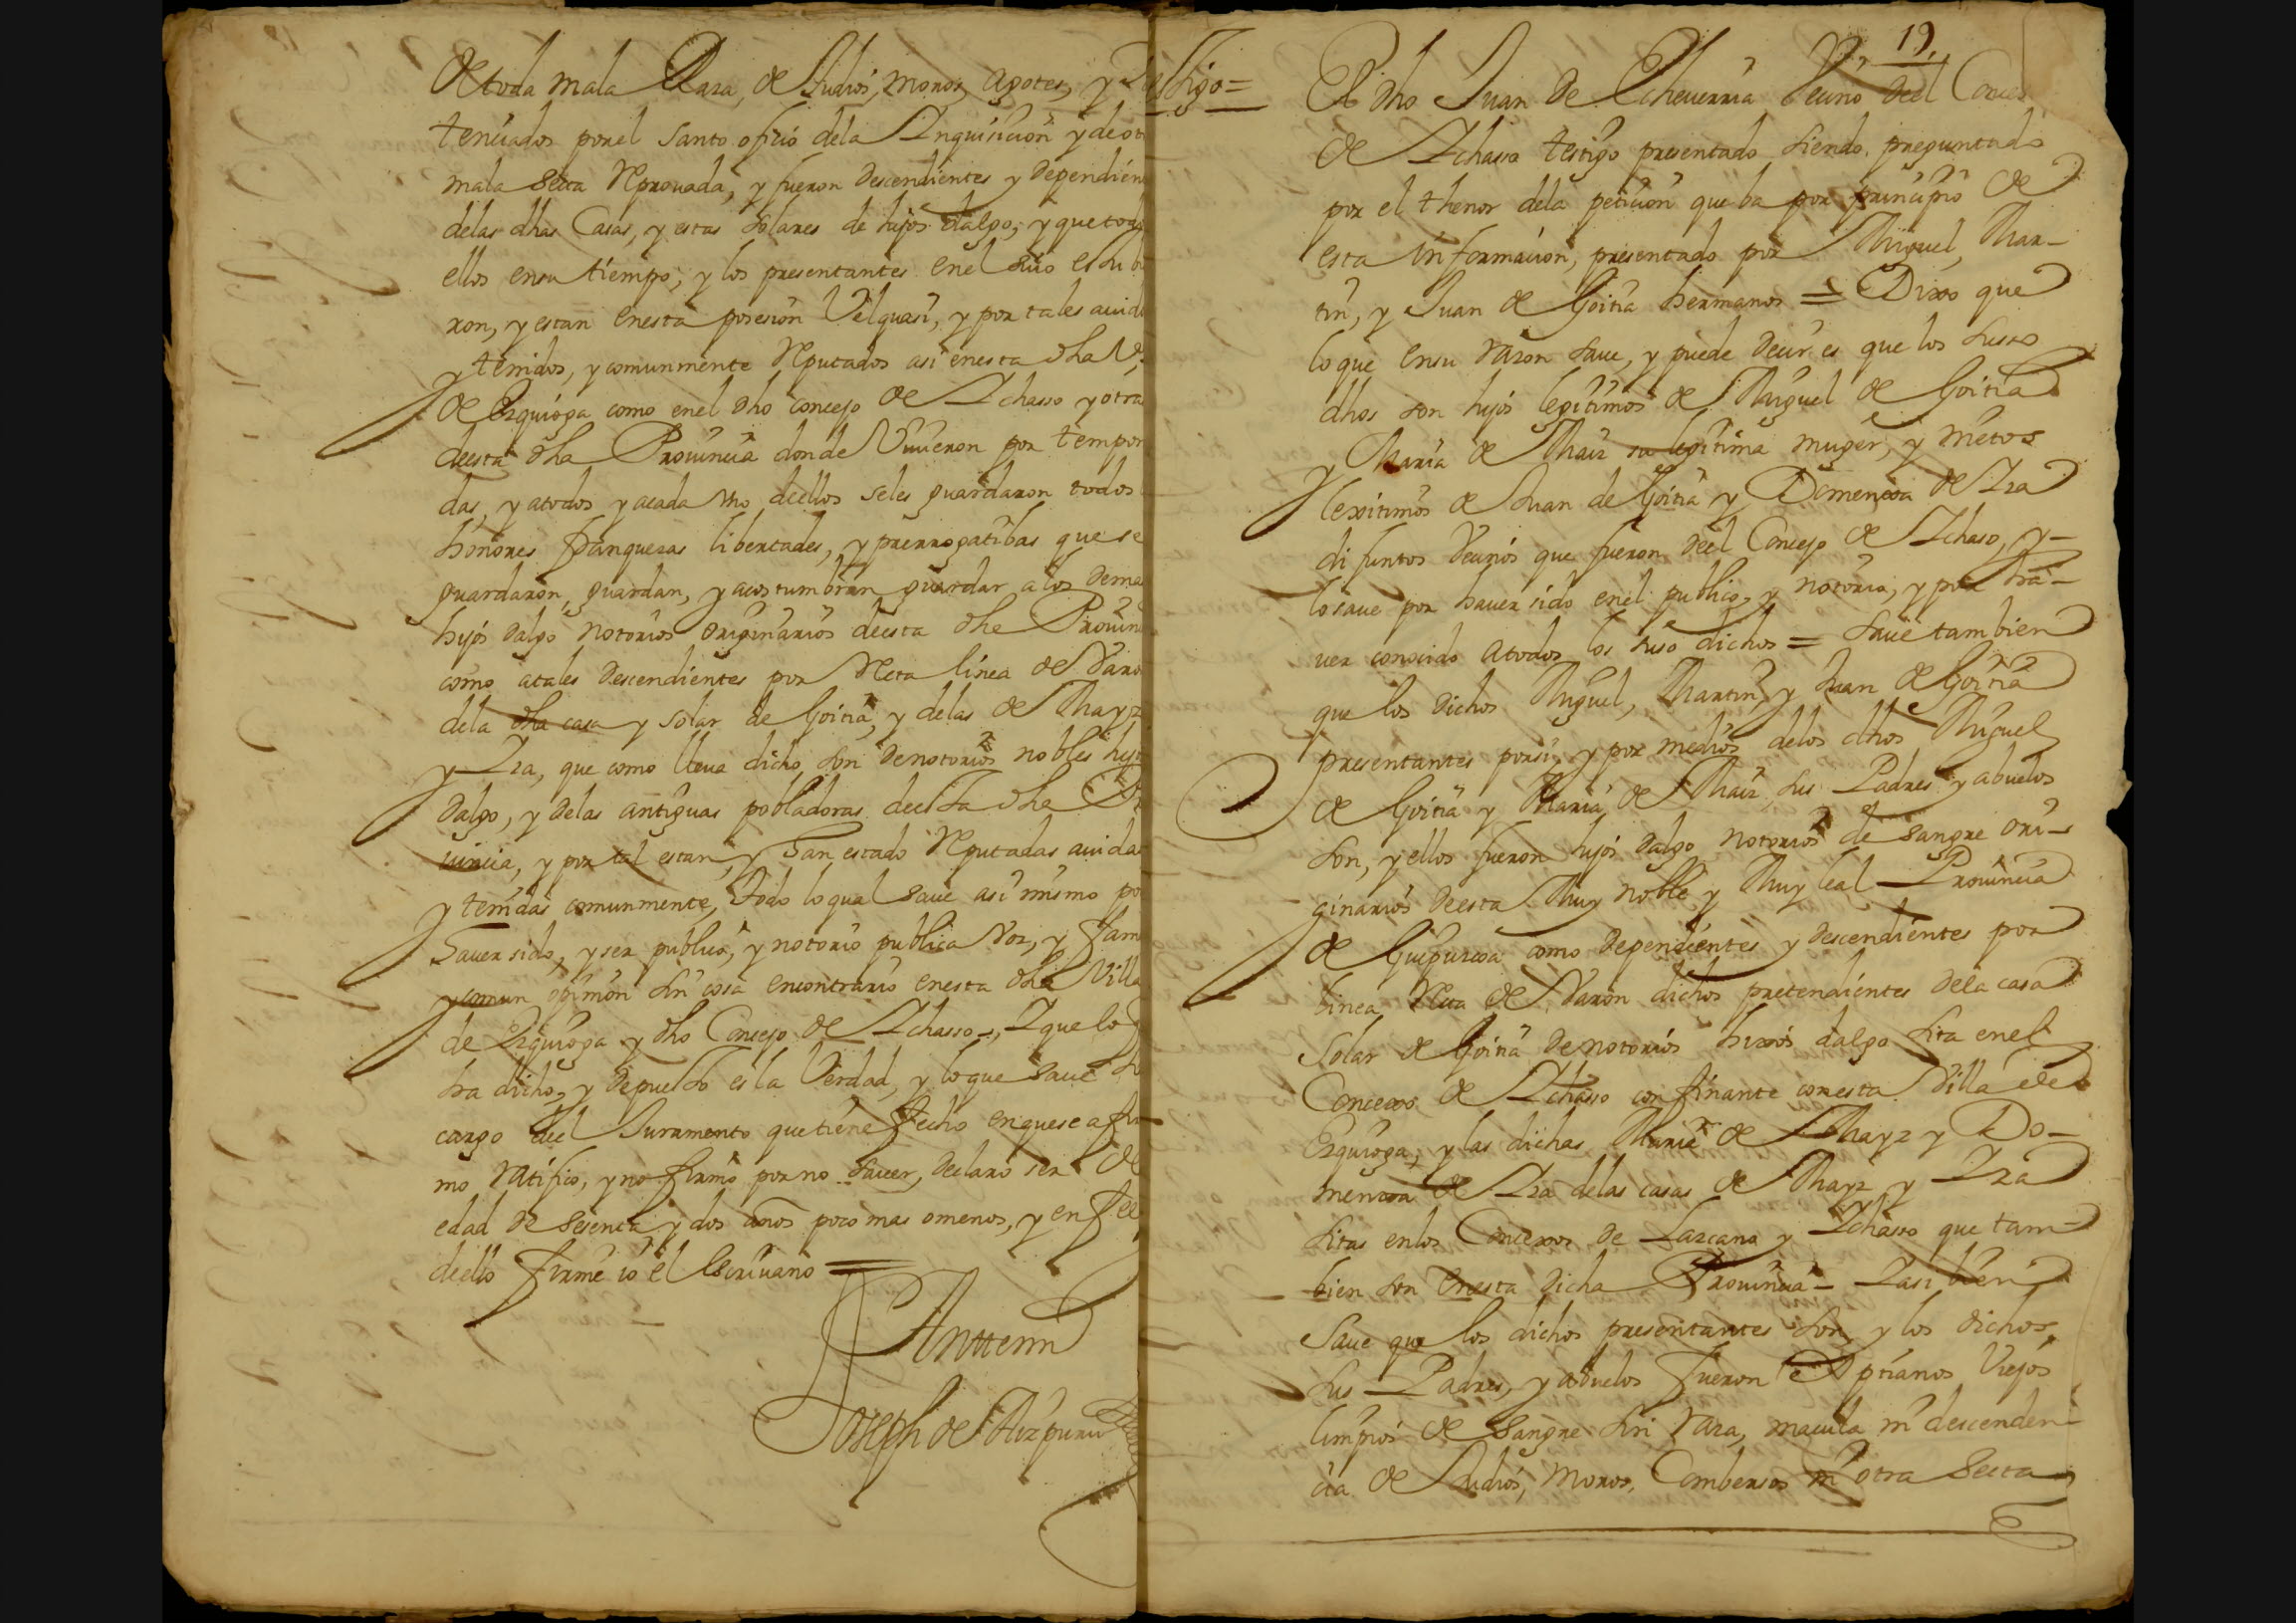 de toda mala Raza, de Judios, moros, agotes, y
tenciados por el santo oficio dela Inquisicion y de ot
mala Secta Reprouada, y fueron Descendientes y Dependien
delas dhas Casas, y estas solares de hijos dalgo; y que todo
ellos ensu tiempo; y los presentantes enel suio estubi
ron, y estan enesta posesion Velquasi, y por tales auido
y tenidos, y comunmente Reputados asi enesta dha Vª
de Ezquioga como enel dho concejo de Ichasso y otra
deesta dha Prouincia donde Viuieron por tempor
das, y atodos y acada vno deellos seles guardaron todos
honores franquezas libertades, y prerrogatibas que se
guardaron, guardan, y acostumbran guardar alos dema
hijos dalgo notorios originarios deesta dha Prouin
como atales Descendientes por Recta linea de Varo
dela dha casa y solar de Goitia, y delas de Mayz
y Iza, que como lleua dicho son de notorios nobles hijo
dalgo, y delas antiguas pobladoras deesta dha Pr
uincia, y por tal estan, y han estado Reputadas auida
y tenidas comunmente, Todo lo qual saue asi mismo po
hauer sido, y ser publico, y notorio publica Voz, y fam
y comun opinion sin cosa encontrario enesta dha Villa
de Ezquioga y dho Concejo de Ichasso, Y que lo
ha dicho, y depuesto es la Verdad, y lo que saue so
cargo del Juramento que tiene fecho en que se afir
mo ratifico, y no firmo por no sauer, declaro ser de
edad de sesenta y dos años poco mas omenos, y en fee
deello firme io el Escriuano =
Anttemi
Joseph de Aizpuru
tigo =
19
El dho Juan de Echeuerria Vecino deel Concejo
de Ichasso testigo presentado siendo preguntado
por el thenor dela peticion que ba por principio de
esta informacion, presentado por Miguel, Mar-
tin, y Juan de Goitia hermanos = Dixo que
lo que ensu razon saue, y puede decir es que los suso
dhos son hijos legitimos de Miguel de Goitia
y Maria de Maiz su legitima muger, y nietos
lexitimos de Juan de Goitia y Domenxa de Iza
difuntos Vecinos que fueron deel Concejo de Ichaso, y
lo saue por hauer sido enel publico, y notorio, y por ha-
uer conocido atodos los suso dichos = Saue tambien
que los dichos Miguel, Martin, y Juan de Goitia
presentantes porsi, y por medios delos dhos Miguel
de Goitia y Maria de Maiz, sus Padres y abuelos
son, y ellos fueron hijos dalgo notorios de sangre ori-
ginarios deesta Muy noble y Muy leal Prouincia
de Guipuzcoa como Dependientes y Descendientes por
linea Recta de Varon dichos pretendientes dela casa
Solar de Goitia de notorios hixos dalgo sita enel
Concexo de Ichasso confinante conesta Villa de
Ezquioga, y las dichas Maria de Mayz y Do-
menxa de Iza delas casas de Mayz y Iza
sitas enlos Concexos de Lazcano y Ichasso que tam-
bien son enesta dicha Prouincia - Y asi bien
Saue que los dichos presentantes son, y los dichos
sus Padres, y abuelos fueron Xptianos Viejos
limpios de sangre sin raza, macula ni descenden-
cia de Judios, Moros, Combersos ni otra Secta